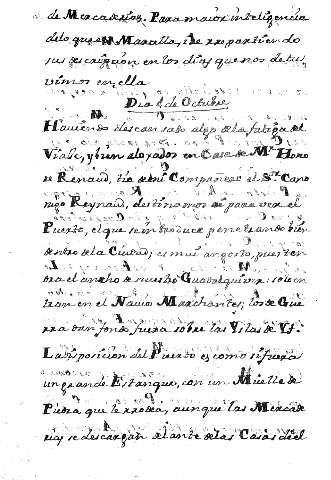 de Mercaderias. Para maior inteligencia
de lo que es Marsella, ire repartiendo
sus descripcion en los dias que nos detu
vimos en ella
Dia 1 de Octubre
Haviendo descansado algo de la fatiga del
Viaje, y bien aloxados en Casa de Mr. Hono
re Renaud, tio de mi Compañero el Sr. Cano
nigo Reynaud, destinamos oi para ver el
Puerto, el que se introduce penetrando bien
dentro de la Ciudad; es mui angosto, pues ten
dra el ancho de nuestro Guadalquivir: solo en
tran en el Navios Marchantes; los de Gue
rra dan fondo fuera sobre las Yslas de Yf.
La disposicion del Puerto es como si fuera
un grande Estanque, con un Muelle de
Piedra que le rodea, aunque las Merca
rias se descargan delante de las Casas de el